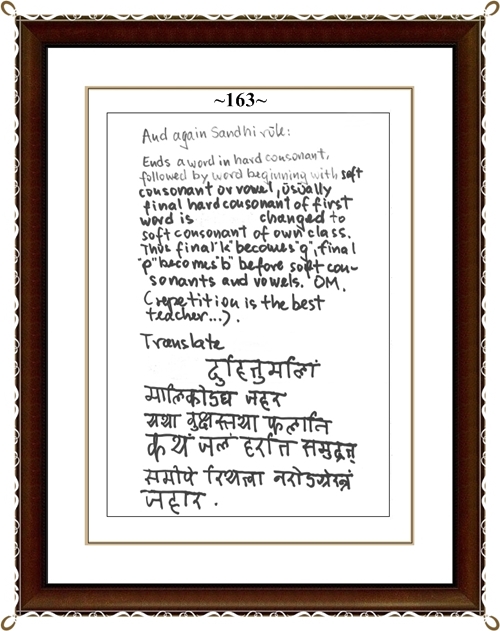 ~163~
And again Sandhi rule:
Ends a word in hard consonant,
followed by word beginning with soft
consonant or vowel, usually
final hard consonant of first
word is changed to
soft consonant of own class.
Thus final "k" becomes "g", final
"p" becomes "b" before soft con-
sonants and vowels. OM.
(repetition is the best
teacher...).
Translate
दुहितुर्मालां
मालिकोऽद्य जहर
यथा वृक्षस्तथा फलानि
कथं जलं हरति समुद्रात्
समीपे स्थित्वा नरोऽग्रेरन्नं
जहार .